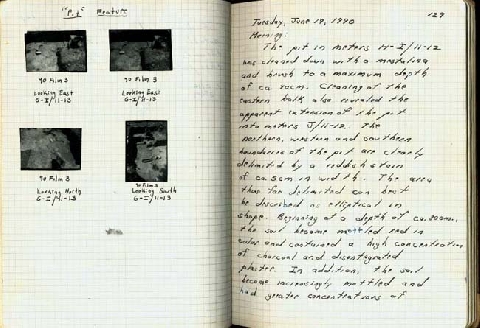 "P.g" Feature
70 Film 3
Looking East
G-I/11-13
70 Film 3
Looking East
G-I/11-13
70 Film 3
Looking North
G-I/11-13
70 Film 3
Looking South
G-I/11-13
129
Tuesday, June 19, 1970
Morning:
The pit in meters H-I/11-12
was cleaned down with a
and brush to a maximum depth
of ca 50cm. Cleaning of the
eastern balk also revealed the
apparent extension of the pit
into meters J/11-12. The
northern, western and southern
boundaries of the pit are clearly
delimited by a reddish stain
of ca 5cm in width. The area
thus far delimited can best
be described as elliptical in
shape. Beginning at a depth of ca. 20cm,
the soil became mottled red in
color and contained a high concentration
of charcoal and disintegrated
plaster. In addition, the soil
became increasingly mottled and
had greater concentrations of